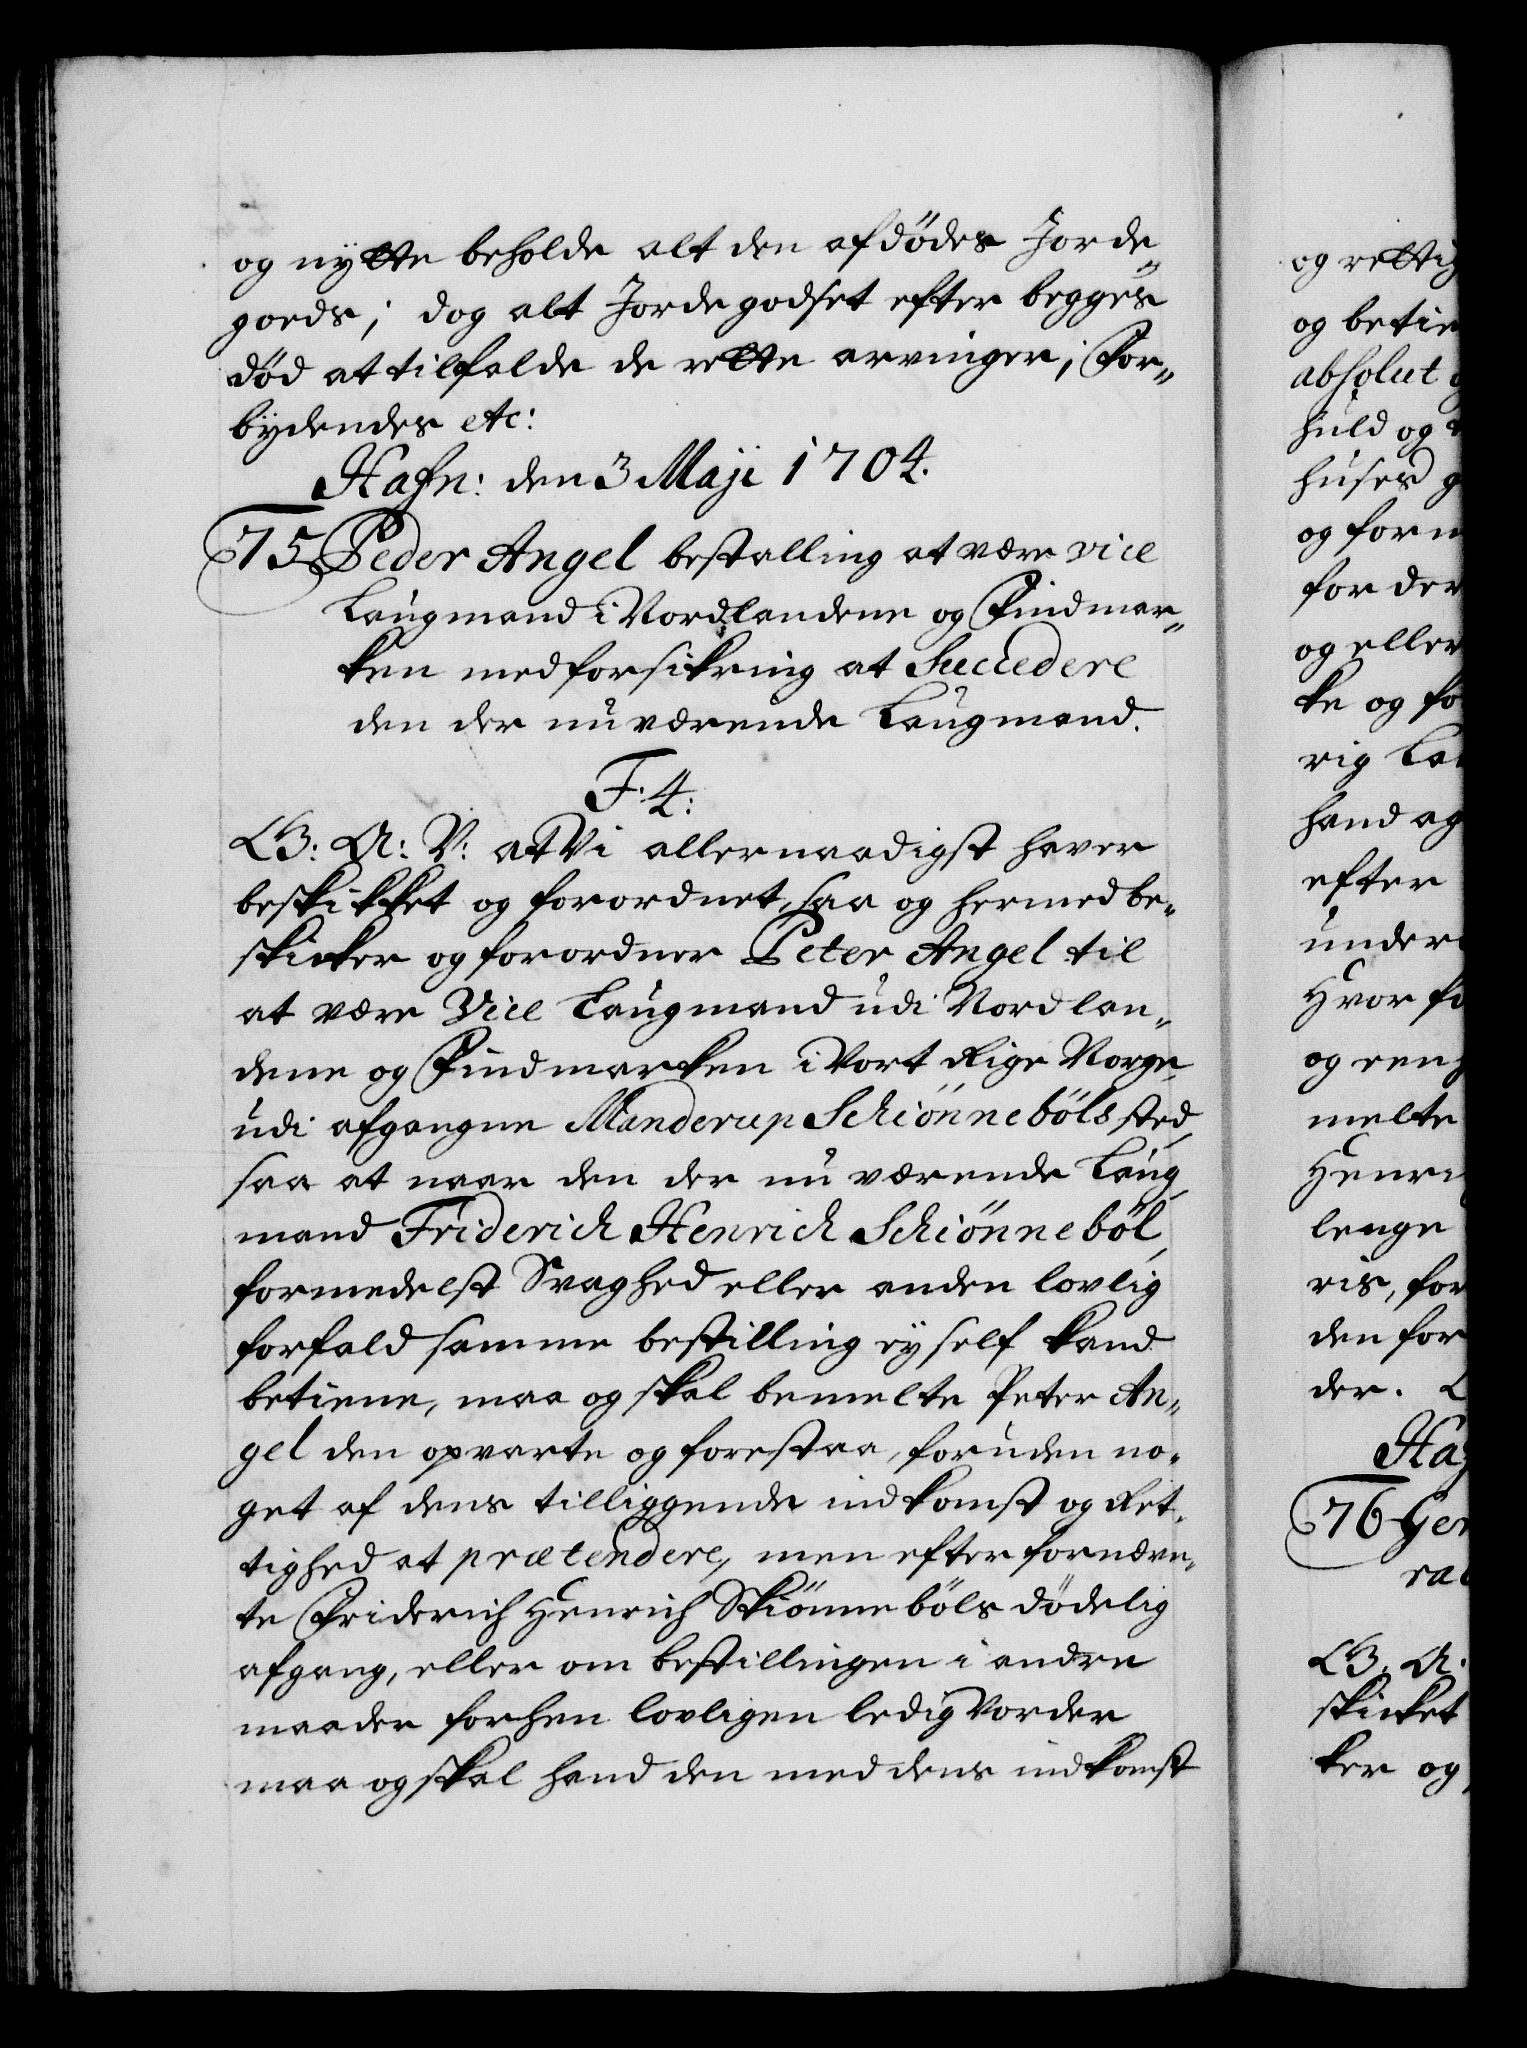 og nÿtte beholde alt den afdödes Jorde„
goeds; dog alt Jordegodset efter begges
död at tilfalde de rette arvinger; For„
bÿdendes etc:
Hafn: den 3 Maji 1704.
75 Peder Angel bestalling at være vice
Laugmand i Nordlandene og Findmar„
ken med forsikring at Succedere
den der nu værende Laugmand.
F. 4:
G: A: V: at Vi allernaadigst haver
beskikket og forordnet, saa og hermed be„
skicker og forordner Peter Angel til
at være Vice Laugmand udi Nordlan„
dene og Findmarken i Vort Rige Norge,
udi afgangne Manderup Schiönneböls sted,
saa at naar den der nu værende Laug
mand Friderich Henrich Schiönneböl,
formedelst Svaghed eller anden lovlig
forfald samme bestilling eÿ self kand
betiene, maa og skal bemelte Peter An„
gel den opvarte og forestaa, foruden no„
get af dens tilliggende indkomst og Ret„
tighed at prætendere, men efter fornævn„
te Friderich Henrich Skiönneböls dödelig
afgang, eller om bestillingen i andre
maader forhen lovligen ledig Vorder
maa og skal hand den med dens indkomst
og rettig
og betie
absolut
huld og
huses
og form
for der
og eller
ke og fo
rig La
hand ag
efter
under
Hvor fo
og een
melte
Henri
lenge
ris, for
den for
der.
Haf
76 Ger
ra
G: A:
skicket
ker og